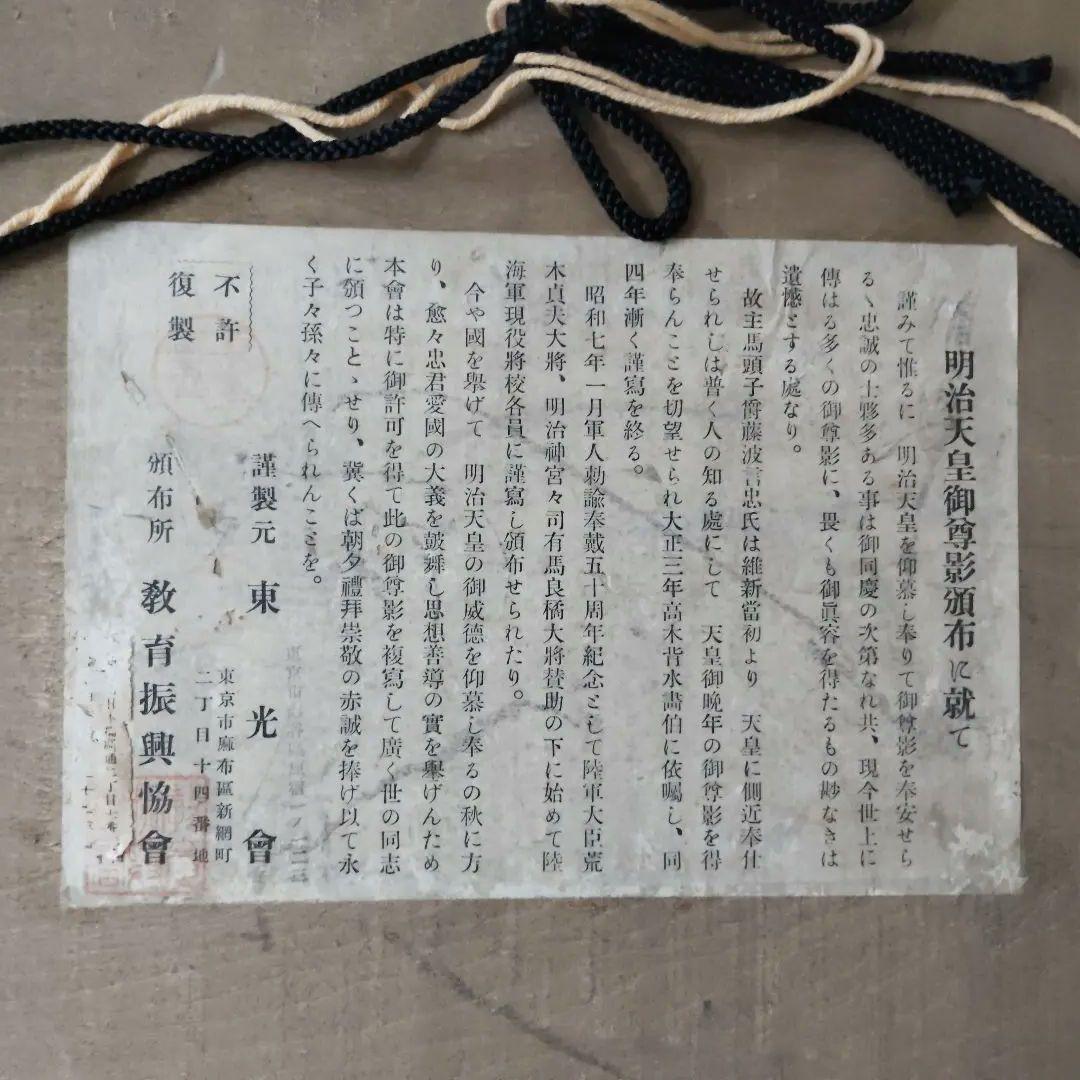 明治天皇御尊影頒布に就て
謹みて惟るに　明治天皇を仰慕し奉りて御尊影を奉安せら
るゝ忠誠の士夥多ある事は御同慶の次第なれ共、現今世上に
傳はる多くの御尊影に、畏くも御眞容を得たるもの尠なきは
遺憾とする處なり。
故主馬頭子爵藤波言忠氏は維新當初より　天皇に側近奉仕
せられしは普く人の知る處にして　天皇御晩年の御尊影を得
奉らんことを切望せられ大正三年高木背水畵伯に依囑し、同
四年漸く謹寫を終る。
昭和七年一月軍人勅諭奉戴五十周年紀念として陸軍大臣荒
木貞夫大將、明治神宮々司有馬良橘大將賛助の下に始めて陸
海軍現役將校各員に謹寫し頒布せられたり。
今や國を擧げて　明治天皇の御威德を仰慕し奉るの秋に方
り、愈々忠君愛國の大義を鼓舞し思想善導の實を擧げんため
本會は特に御許可を得て此の御尊影を複寫して廣く世の同志
に頒つことゝせり、冀くば朝夕禮拜崇敬の赤誠を捧げ以て永
く子々孫々に傳へられんことを。
不許
復製
謹製元　東光會
東京市麻布區新網町
二丁目十四番地
頒布所　敎育振興協會